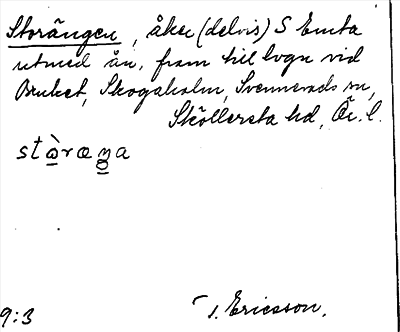 Storängen, åker (delvis) S Emta
utmed ån, fram till bron vid
Bruket, Skogaholm, Svennevads sn,
Sköllersta hd, Ör. l.
stὼ̲ræŋ̲a
9:3 T. Ericsson.